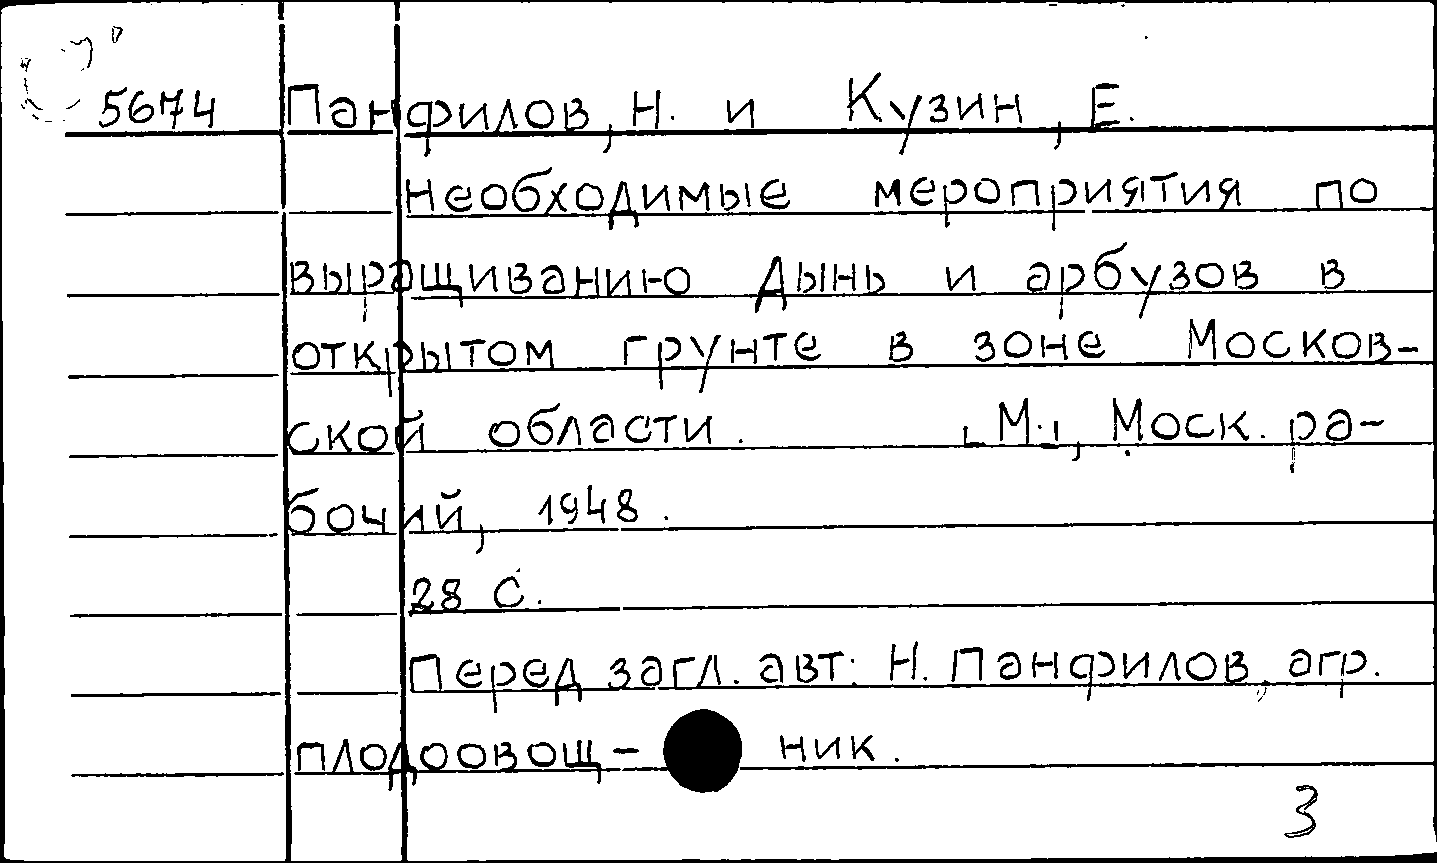 5674 Панфилов, Н. и Кузин, Е.
Необходимые мероприятия по
выращиванию дынь и арбузов в
открытом грунте в зоне Москов-
ской области. [М.], Моск. ра-
бочий, 1948.
28 с.
Перед загл. авт: Н. Панфилов, агр.
плодоовощ- ник.
3